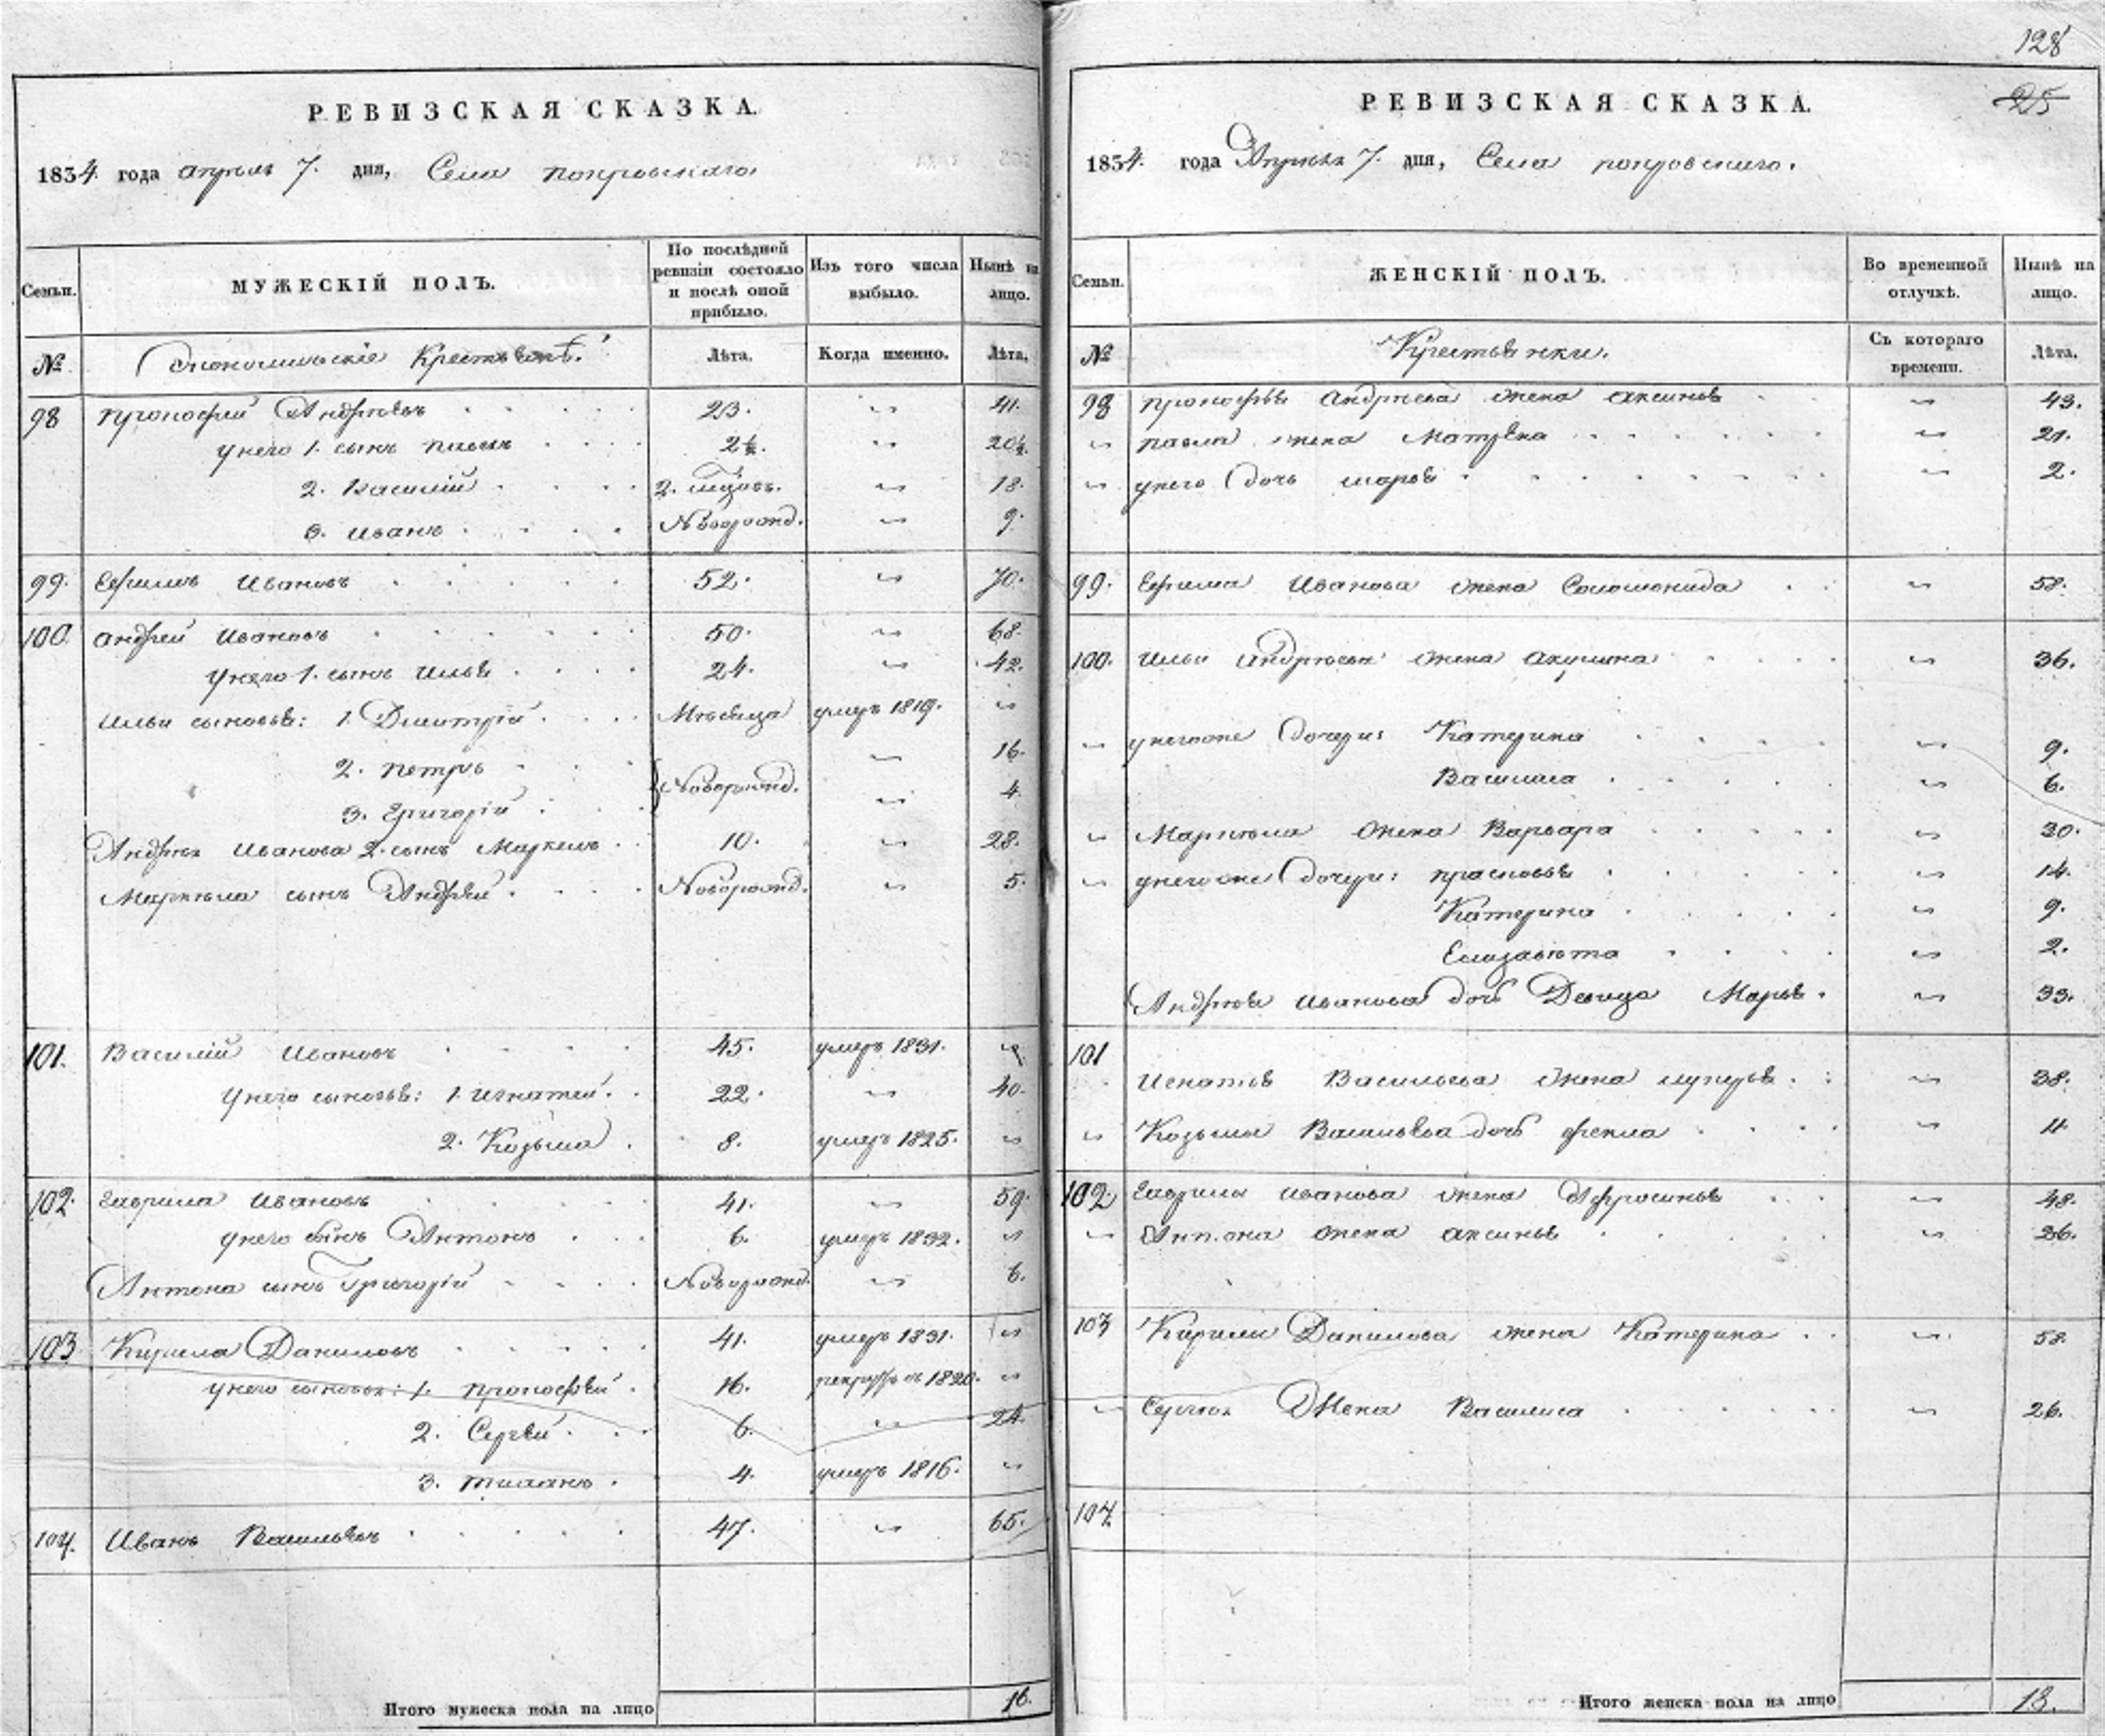 128
РЕВИЗСКАЯ СКАЗКА.
1834. года апреля 7. дня, Села покровскаго
Семьи.
МУЖЕСКІЙ ПОЛЪ.
По послѣдней ревизіи состояло и послѣ оной прибыло.
Изъ того числа выбыло.
Нынѣ на лицо.
№
Экономическіе Крестьянѣ.
Лѣта.
Когда именно.
Лѣта.
98 прокофей Андреевъ 23. 41.
унего 1. сынъ павелъ 2½. 20½.
2. Василій 2. 18.
3. иванъ Новорожд. 9.
99. Ефимъ Ивановъ 52. 70.
100. андрей ивановъ 50. 68.
унего 1. сынъ илья 24. 42.
ильи сыновья: 1. Дмитрій Мѣсяца умеръ 1819.
2. петръ Новорожд. 16.
3. Григорій 4.
Андрея Иванова 2. сынъ Маркелъ 10. 28.
Маркела сынъ Андрей Новорожд. 5.
101. Василій Ивановъ 45. умеръ 1831.
Унего сыновья: 1. игнатей. 22. 40.
2. Козьма 8. умеръ 1825.
102. Гаврила Ивановъ 41. 59.
унего сынъ Антонъ 6. умеръ 1832.
Антона сынъ Григорій Новорожд. 6.
103 Кирила Даниловъ 41. умеръ 1831.
унего сыновья: 1. прокофей. 16. рекрутъ въ 1820.
2. Сергѣй 6. 24.
3. 4. умеръ 1816.
104. Иванъ Васильевъ 47. 65.
Итого мужеска пола на лицо 16.
РЕВИЗСКАЯ СКАЗКА.
25
1834. года Апреля 7. дня, Села покровскаго.
Семьи.
ЖЕНСКІЙ ПОЛЪ.
Во временной отлучкѣ.
Нынѣ на лицо.
№
Крестьянки.
Съ котораго времени.
Лѣта.
98 прокофья андреева жена аксинья 43.
павла жена Матрена 21.
унего дочь марья 2.
99. Ефима Иванова жена Соломонида 58.
100. ильи андреева жена акулина 36.
унегоже дочери: Катерина 9.
Василиса 6.
Маркела жена Варвара 30.
унегоже дочери: прасковья 14.
Катерина 9.
Елизавета 2.
Андрея иванова дочь Девица Марья. 33.
101
Игнатья Васильева жена лукерья 38.
Козьмы Васильева дочь фекла 11.
102. Гаврилы иванова жена Афросинья 48.
Антона жена аксинья 26.
103 Кирилы Данилова жена Катерина 58.
Сергея Жена Василиса 26.
104
Итого женска пола на лицо 18.